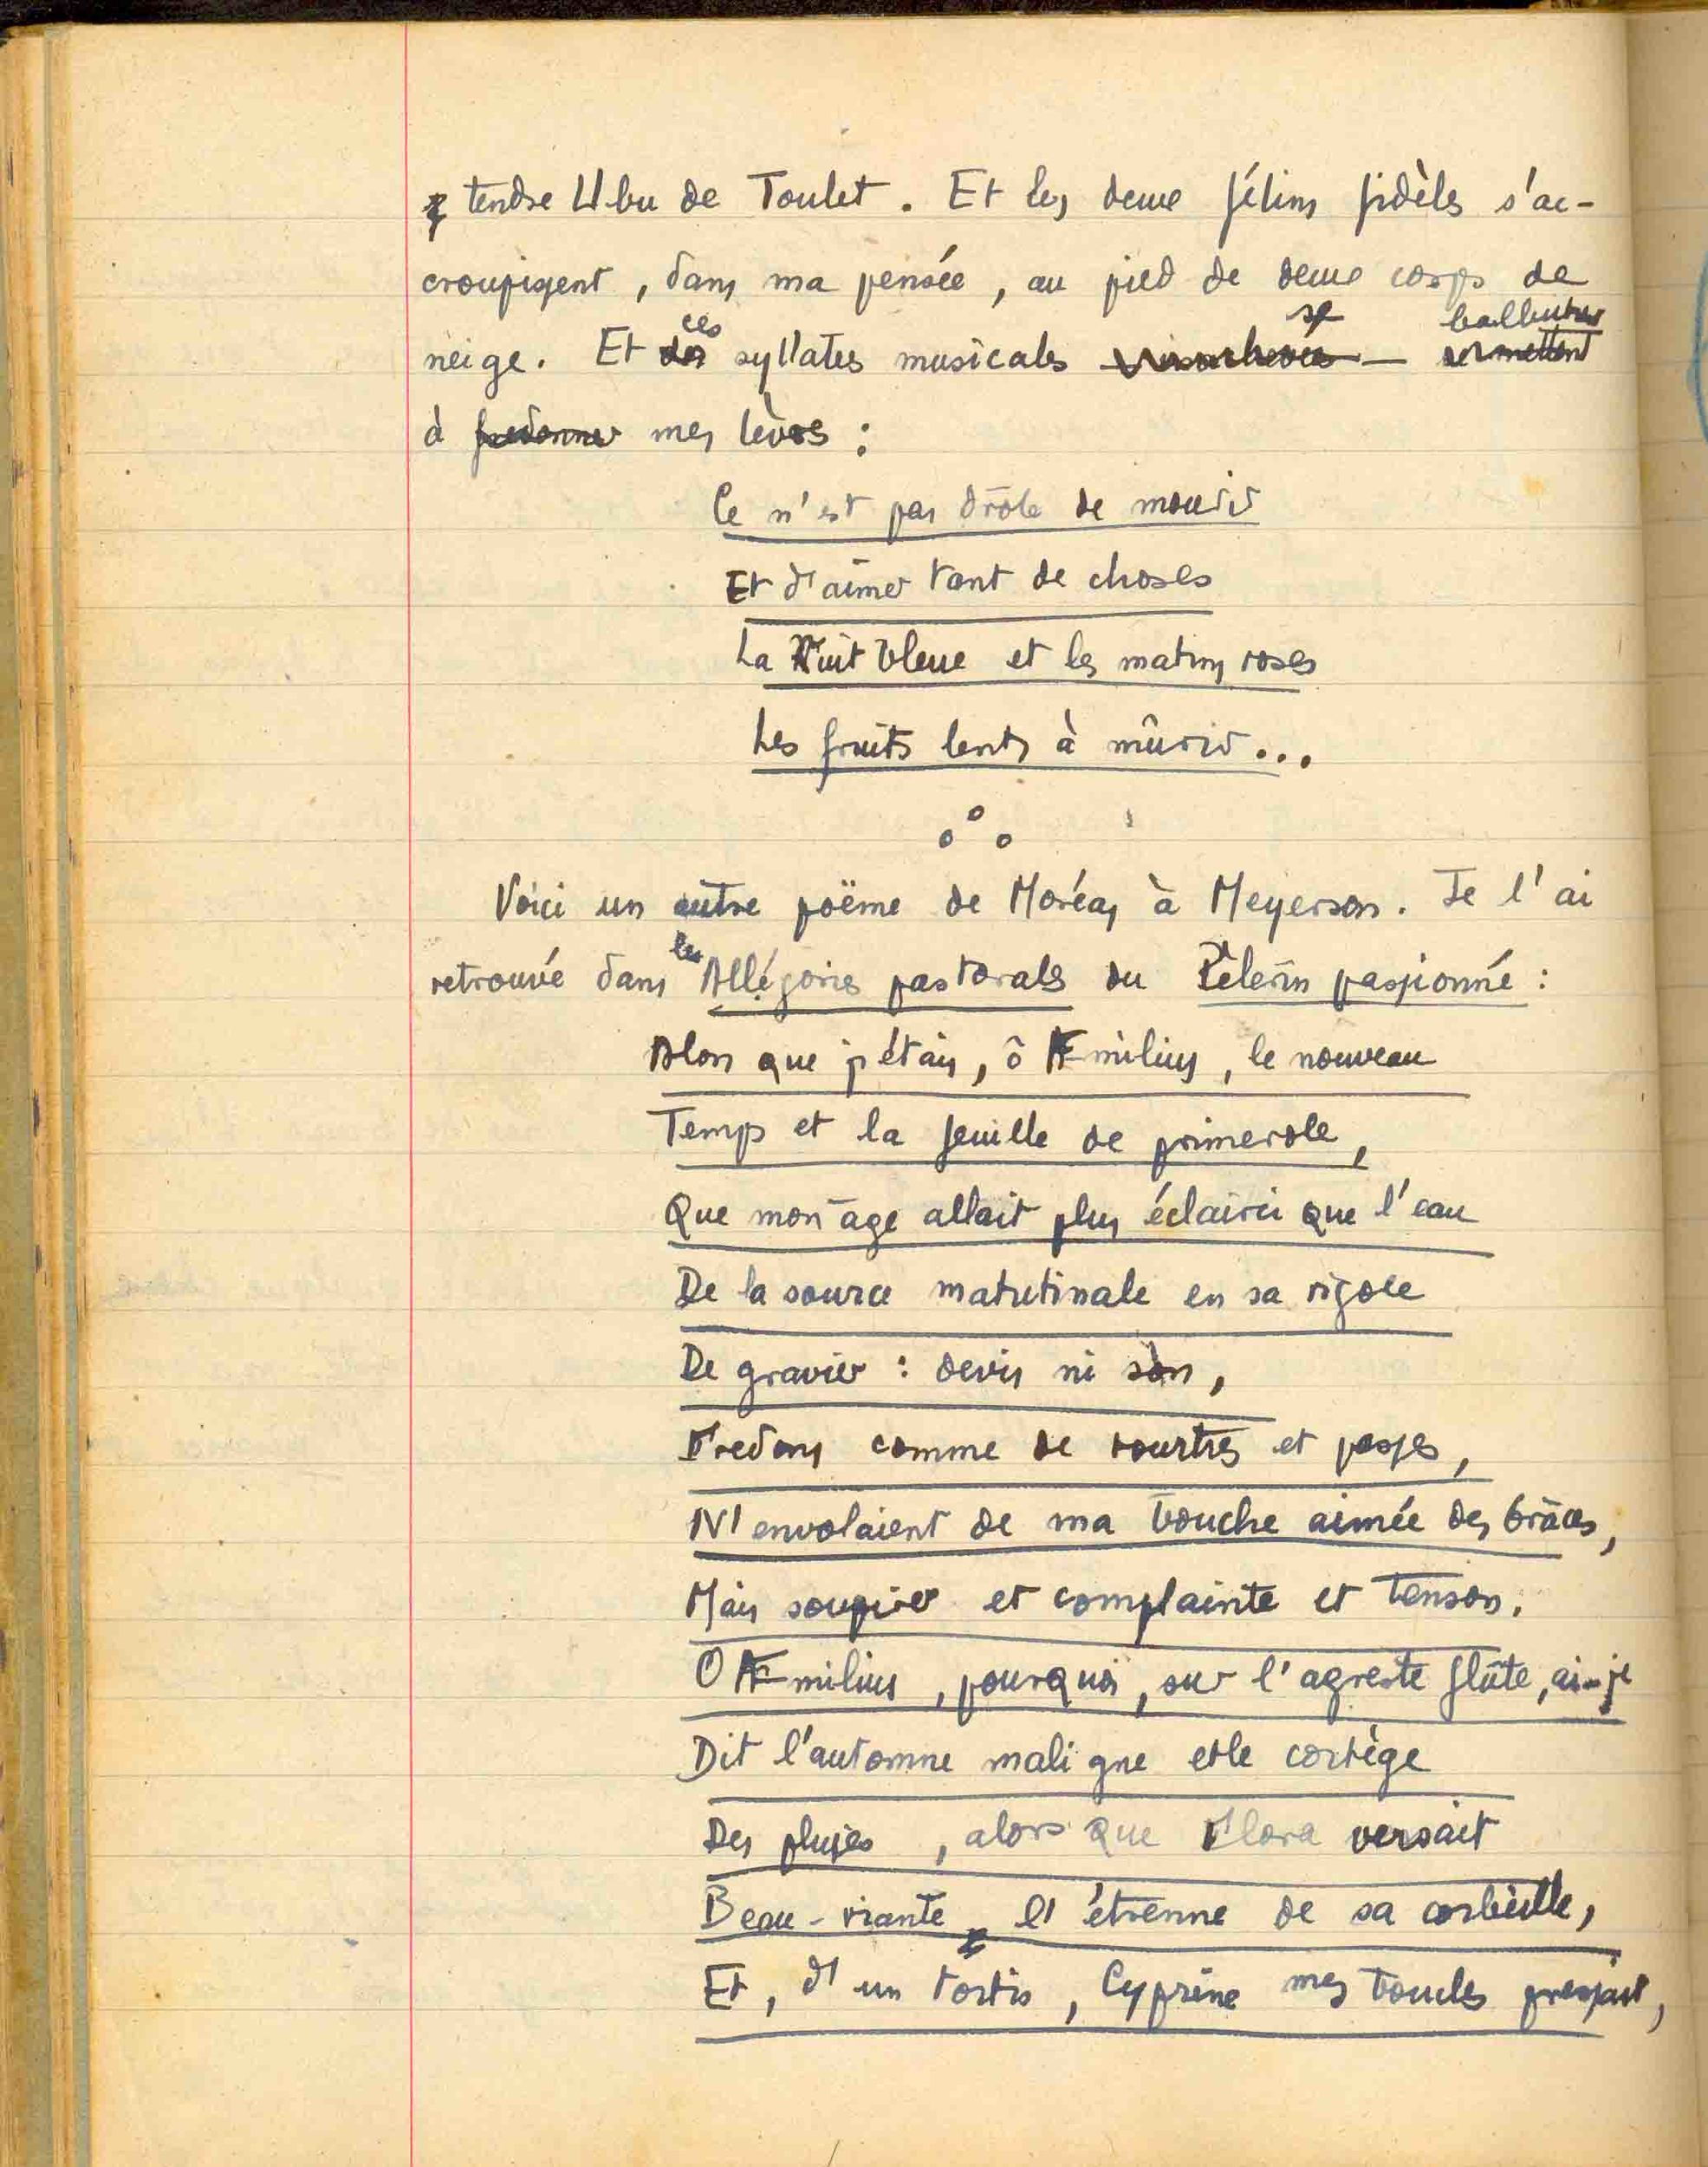 tendre Ubu de Toulet. Et les deux félins fidèles s'ac-
croupissent, dans ma pensée, au pied de deux corps de
ces se balbutier
neige. Et des syllabes musicales inachevées - remettent
à fredonner mes lèvres :
Ce n'est pas drôle de mourir
Et d'aimer tant de choses
La Nuit bleue et les matins roses
Les fruits lents à mûrir...
Voici un autre poëme de Moréas à Meyerson. Je l'ai
les
retrouvé dans Allégories pastorales du Pèlerin passionné :
Alors que j'étais, ô Æmilius, le nouveau
Temps et la feuille de primerole,
Que mon âge allait plus éclairci que l'eau
De la source matutinale en sa rigole
De gravier : devis ni son,
Fredons comme de tourtres et passes,
N'envolaient de ma bouche aimée des Grâces,
Mais soupirer et complainte et tenson.
O Æmilius, pourquoi, sur l'agreste flûte, ai-je
Dit l'automne maligne et le cortège
Des pluies, alors que Flora versait
Beau-riante, l'étrenne de sa corbeille,
Et, d'un tortis, Cyprine mes boucles pressait,